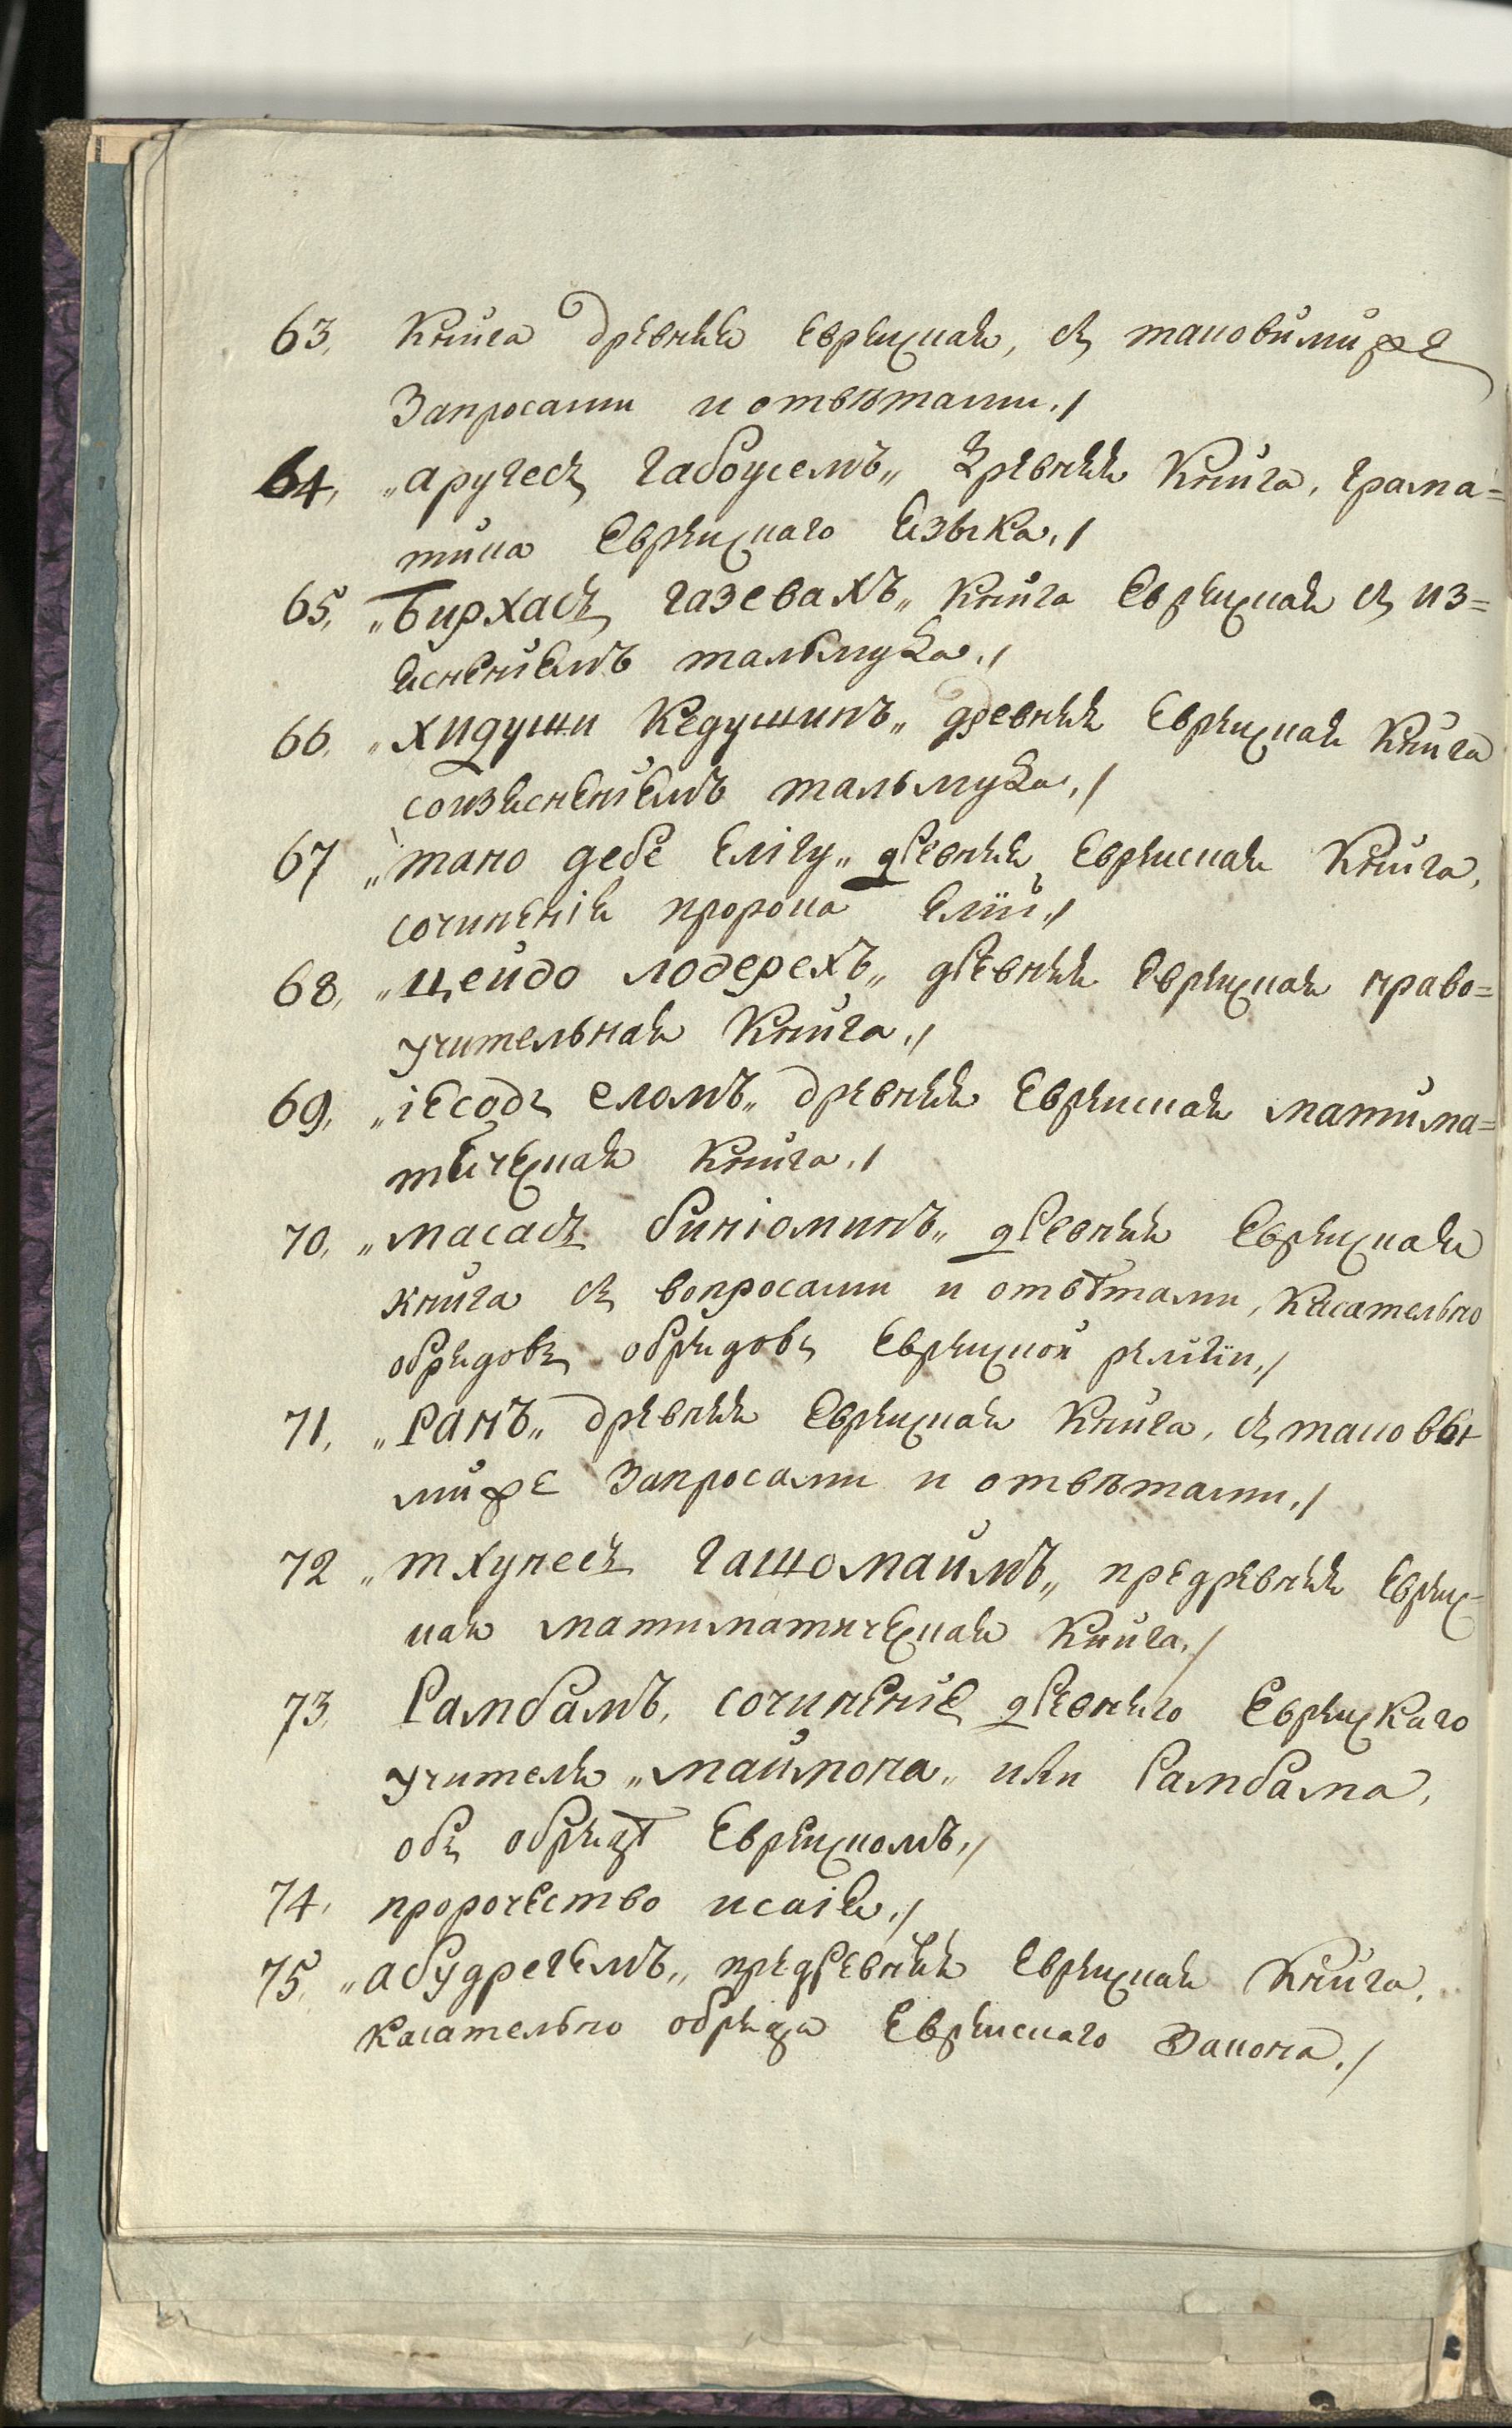 63, Книга древняя Еврейская, съ таковимиже
Запросами и отвѣтами./
64, „аругесъ габоцемъ„ древняя Книга, грама=
тика Еврейскаго языка./
65, „Бирхасъ газевахъ„ Книга Еврейская съ из=
ясненіемъ тальмуда./
66, „хидуши Кедушинъ„ древняя Еврейская Книга
соизясненіемъ тальмуда./
67 „тано дебе Елігу„ древняя Еврейская Книга,
сочиненія пророка Еліи./
68, „цейдо лодерехъ„ древняя Еврейская нраво=
учительная Книга./
69, „іесодъ еломъ„ древняя Еврейская матима=
тическая Книга./
70, „масасъ биніоминъ„ древняя Еврейская
книга съ вопросами и отвѣтами, касательно
обрядовъ обрядовъ Еврейской религіи./
71, „Ранъ„ древняя Еврейская Книга, съ таковы
миже Запросами и отвѣтами./
72 „тхунесъ гашомаимъ„ предревняя Еврейс=
кая матиматическая Книга./
73, Рамбамъ, сочиненіе древняго Еврейскаго
учителя „маймона„ или Рамбама,
объ обрядѣ Еврейскомъ./
74, пророчество исаія./
75, „абудрегемъ„ предревняя Еврейская Книга,
касательно обряда Еврейскаго Закона./